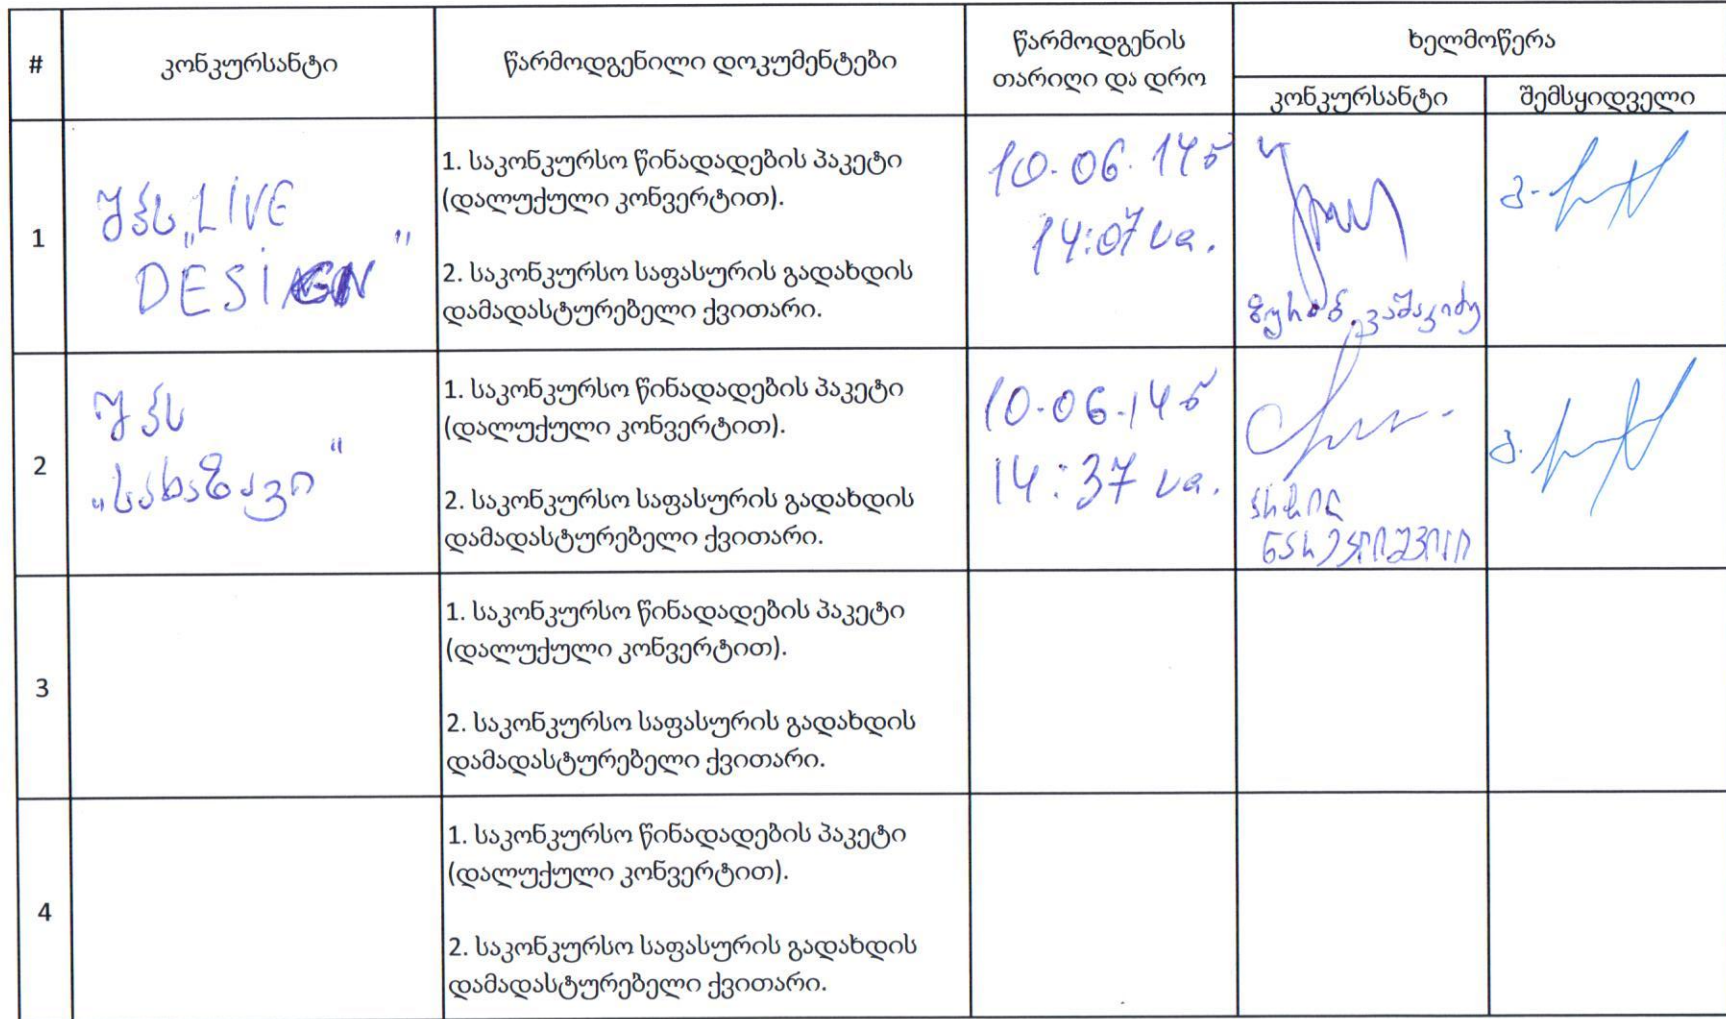 #
კონკურსანტი
წარმოდგენილი დოკუმენტები
წარმოდგენის
თარიღი და დრო
ხელმოწერა
კონკურსანტი
შემსყიდველი
1
შპს „LIVE
DESIGN"
1. საკონკურსო წინადადების პაკეტი
(დალუქული კონვერტით).
2. საკონკურსო საფასურის გადახდის
დამადასტურებელი ქვითარი.
10.06.14წ
14:07 სთ.
ზურაბ
2
შპს
„სახაზავი"
1. საკონკურსო წინადადების პაკეტი
(დალუქული კონვერტით).
2. საკონკურსო საფასურის გადახდის
დამადასტურებელი ქვითარი.
10.06.14წ
14:37 სთ.
3
1. საკონკურსო წინადადების პაკეტი
(დალუქული კონვერტით).
2. საკონკურსო საფასურის გადახდის
დამადასტურებელი ქვითარი.
4
1. საკონკურსო წინადადების პაკეტი
(დალუქული კონვერტით).
2. საკონკურსო საფასურის გადახდის
დამადასტურებელი ქვითარი.